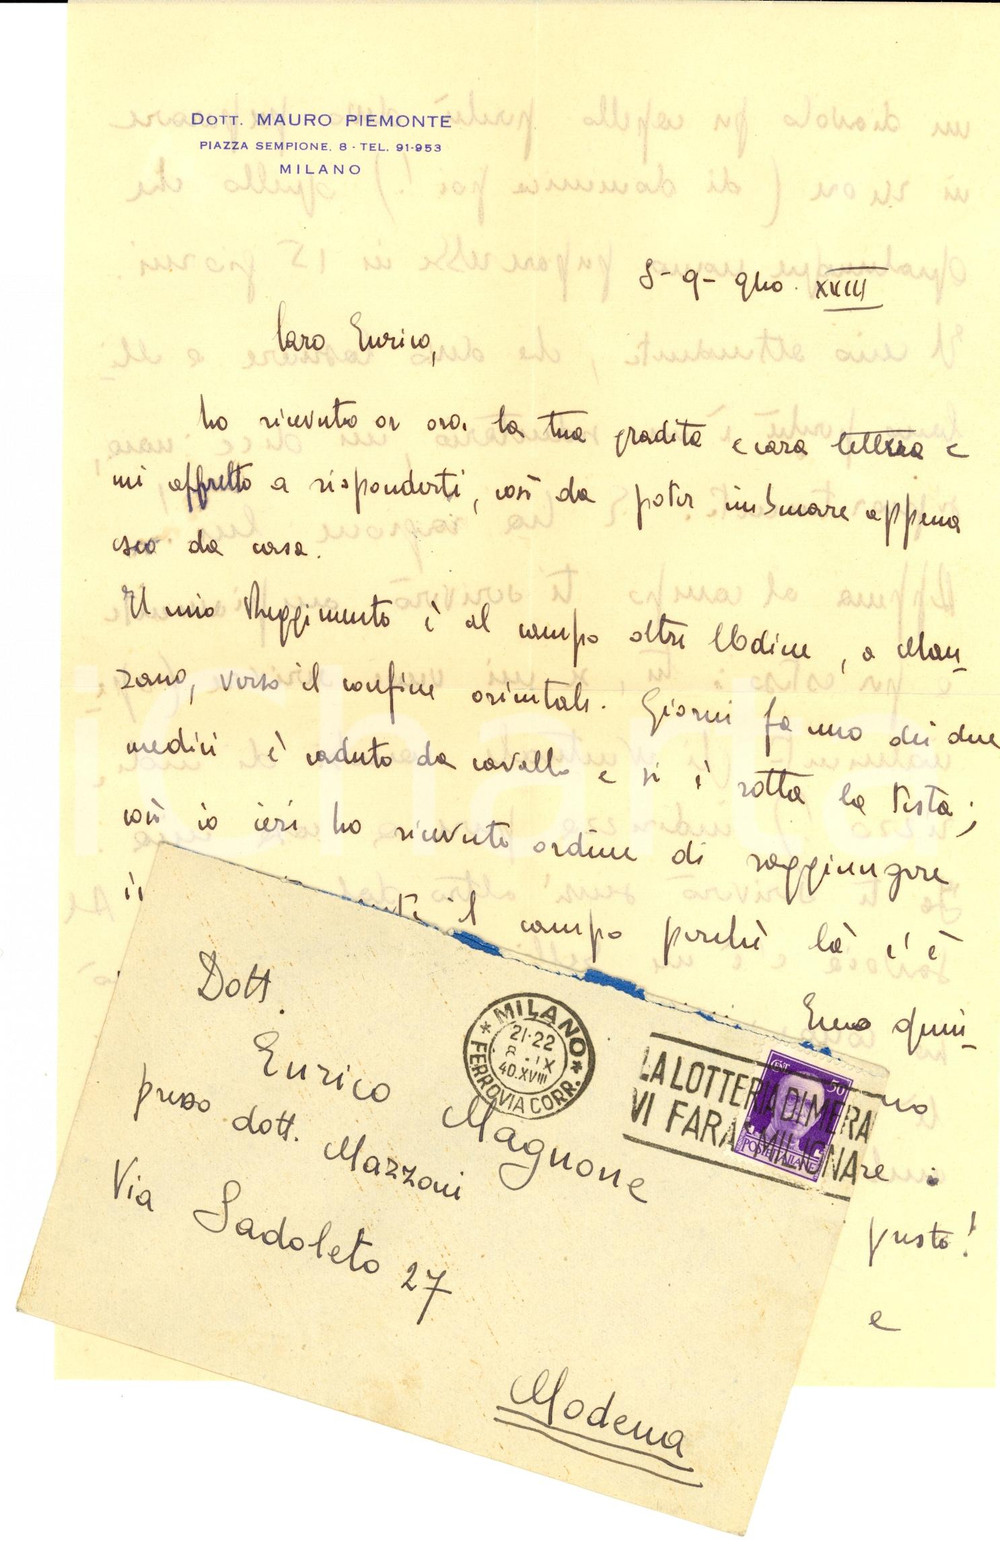 DOTT. MAURO PIEMONTE
PIAZZA SEMPIONE, 8 - TEL. 91-953
MILANO
8-9-940. XVIII
Caro Enrico,
ho ricevuto or ora la tua gradita e cara lettera e
mi affretto a risponderti, così da poter imbucare appena
esco da casa.
Il mio Reggimento è al campo oltre Udine, a Man-
zano, verso il confine orientale. Giorni fa uno dei due
medici è caduto da cavallo e si è rotta la testa;
così io ieri ho ricevuto ordine di raggiungere
il campo perchè là c'è
Ero quin-
no
re :
questo!
e
Dott.
Enrico Magnone
presso dott. Mazzoni
Via Sadoleto 27
Modena
MILANO
21-22
8.IX
40.XVIII
FERROVIA CORR.
LA LOTTERIA DI MERA
VI FARÀ MILIONA
CENT. 50
POSTE ITALIANE